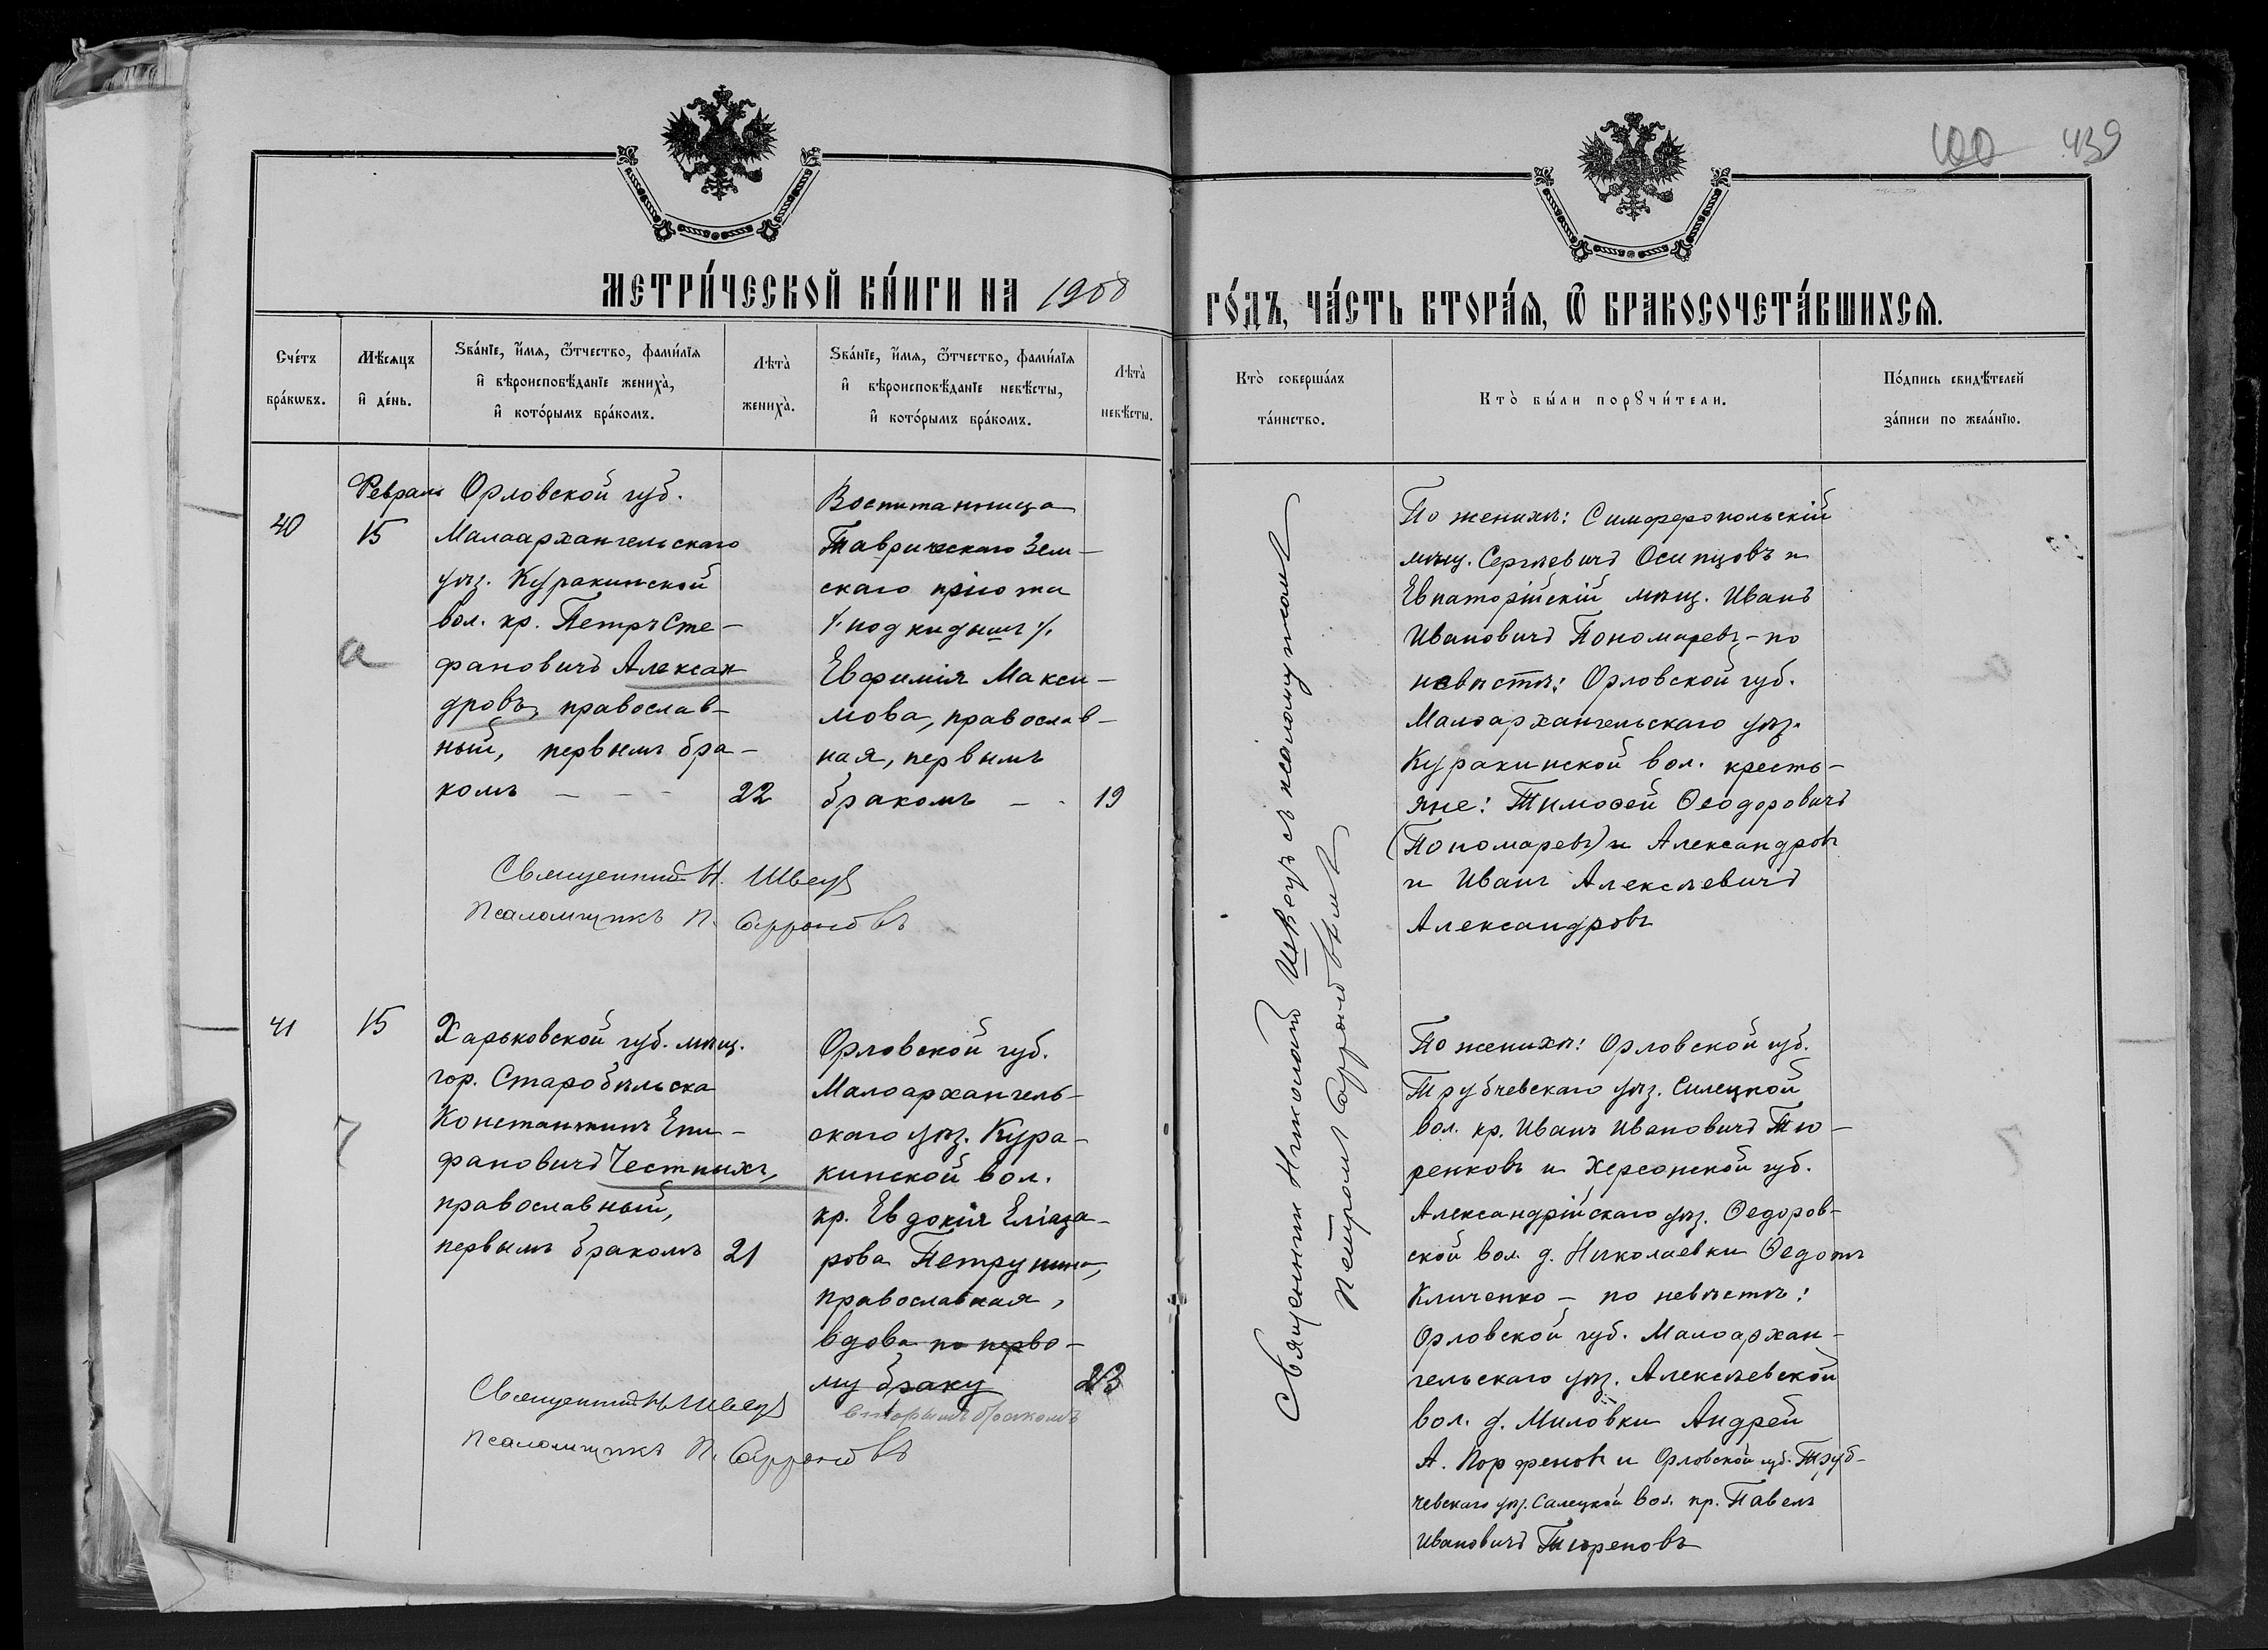 100 439
МЕТРИ́ЧЕСКОЙ КНИ́ГИ НА 1908
ГО́ДЪ, ЧА́СТЬ ВТОРА́Я, Ѿ БРАКОСОЧЕТА́ВШИХСЯ.
Сче́тъ
бра́кѡвъ.
Мѣ́сяцъ
и҆ де́нь.
Ѕва́нїе, и҆́мя, ѻ҆́тчество, фами́лїя
и҆ вѣроисповѣ́данїе жениха̀,
и҆ кото́рымъ бра́комъ.
Лѣта̀
жениха̀.
Ѕва́нїе, и҆́мя, ѻ҆́тчество, фами́лїя
и҆ вѣроисповѣ́данїе невѣ́сты,
и҆ кото́рымъ бра́комъ.
Лѣта̀
невѣ́сты.
Кто̀ соверша́лъ
та́инство.
Кто̀ бы́ли порꙋчи́тели.
По́дпись свидѣ́телей
за́писи по жела́нїю.
40
Февраль
15
а
Орловской губ.
Малоархангельскаго
уѣз. Куракинской
вол. кр. Петръ Сте-
фановичъ Алексан
дровъ, православ-
ный, первымъ бра-
комъ - - -
22
Воспитанница
Таврическаго Зем-
скаго пріюта
/. подкидышъ /.
Евфимія Макси-
мова, православ-
ная, первымъ
бракомъ - -
19
Священникъ Н. Швецъ
Псаломщикъ П. Сафроновъ
Священник Николай Швецъ съ псаломщикомъ
Петромъ Сафроновымъ
По женихѣ: Симферопольскій
мѣщ. Сергѣевичъ Осипцовъ и
Евпаторійскій мѣщ. Иванъ
Ивановичъ Пономаревъ - по
невѣстѣ: Орловской губ.
Малоархангельскаго уѣз.
Куракинской вол. кресть-
яне: Тимоѳей Ѳеодоровичъ
(Пономаревъ) и Александровъ
и Иванъ Алексѣевичъ
Александровъ
41
15
7
Харьковской губ. мѣщ.
гор. Старобѣльска
Константинъ Епи-
фановичъ Честныхъ,
православный,
первымъ бракомъ
21
Орловской губ.
Малоархангель-
скаго уѣз. Кура-
кинской вол.
кр. Евдокія Еліаза-
рова Петрунина,
православная,
вдова по перво-
му браку
вторымъ бракомъ
23
Священникъ Н Швецъ
Псаломщикъ П. Сафроновъ
По женихѣ: Орловской губ.
Трубчевскаго уѣз. Силецкой
вол. кр. Иванъ Ивановичъ Тю-
ренковъ и Херсонской губ.
Александрійскаго уѣз. Ѳедоров-
ской вол. д. Николаевки Ѳедотъ
Кличенко - по невѣстѣ:
Орловской губ. Малоархан-
гельскаго уѣз. Алексѣевской
вол. д. Миловки Андрей
А. Порфеновъ и Орловской губ. Труб-
чевскаго уѣз. Салецкой вол. кр. Павелъ
Ивановичъ Тюреновъ